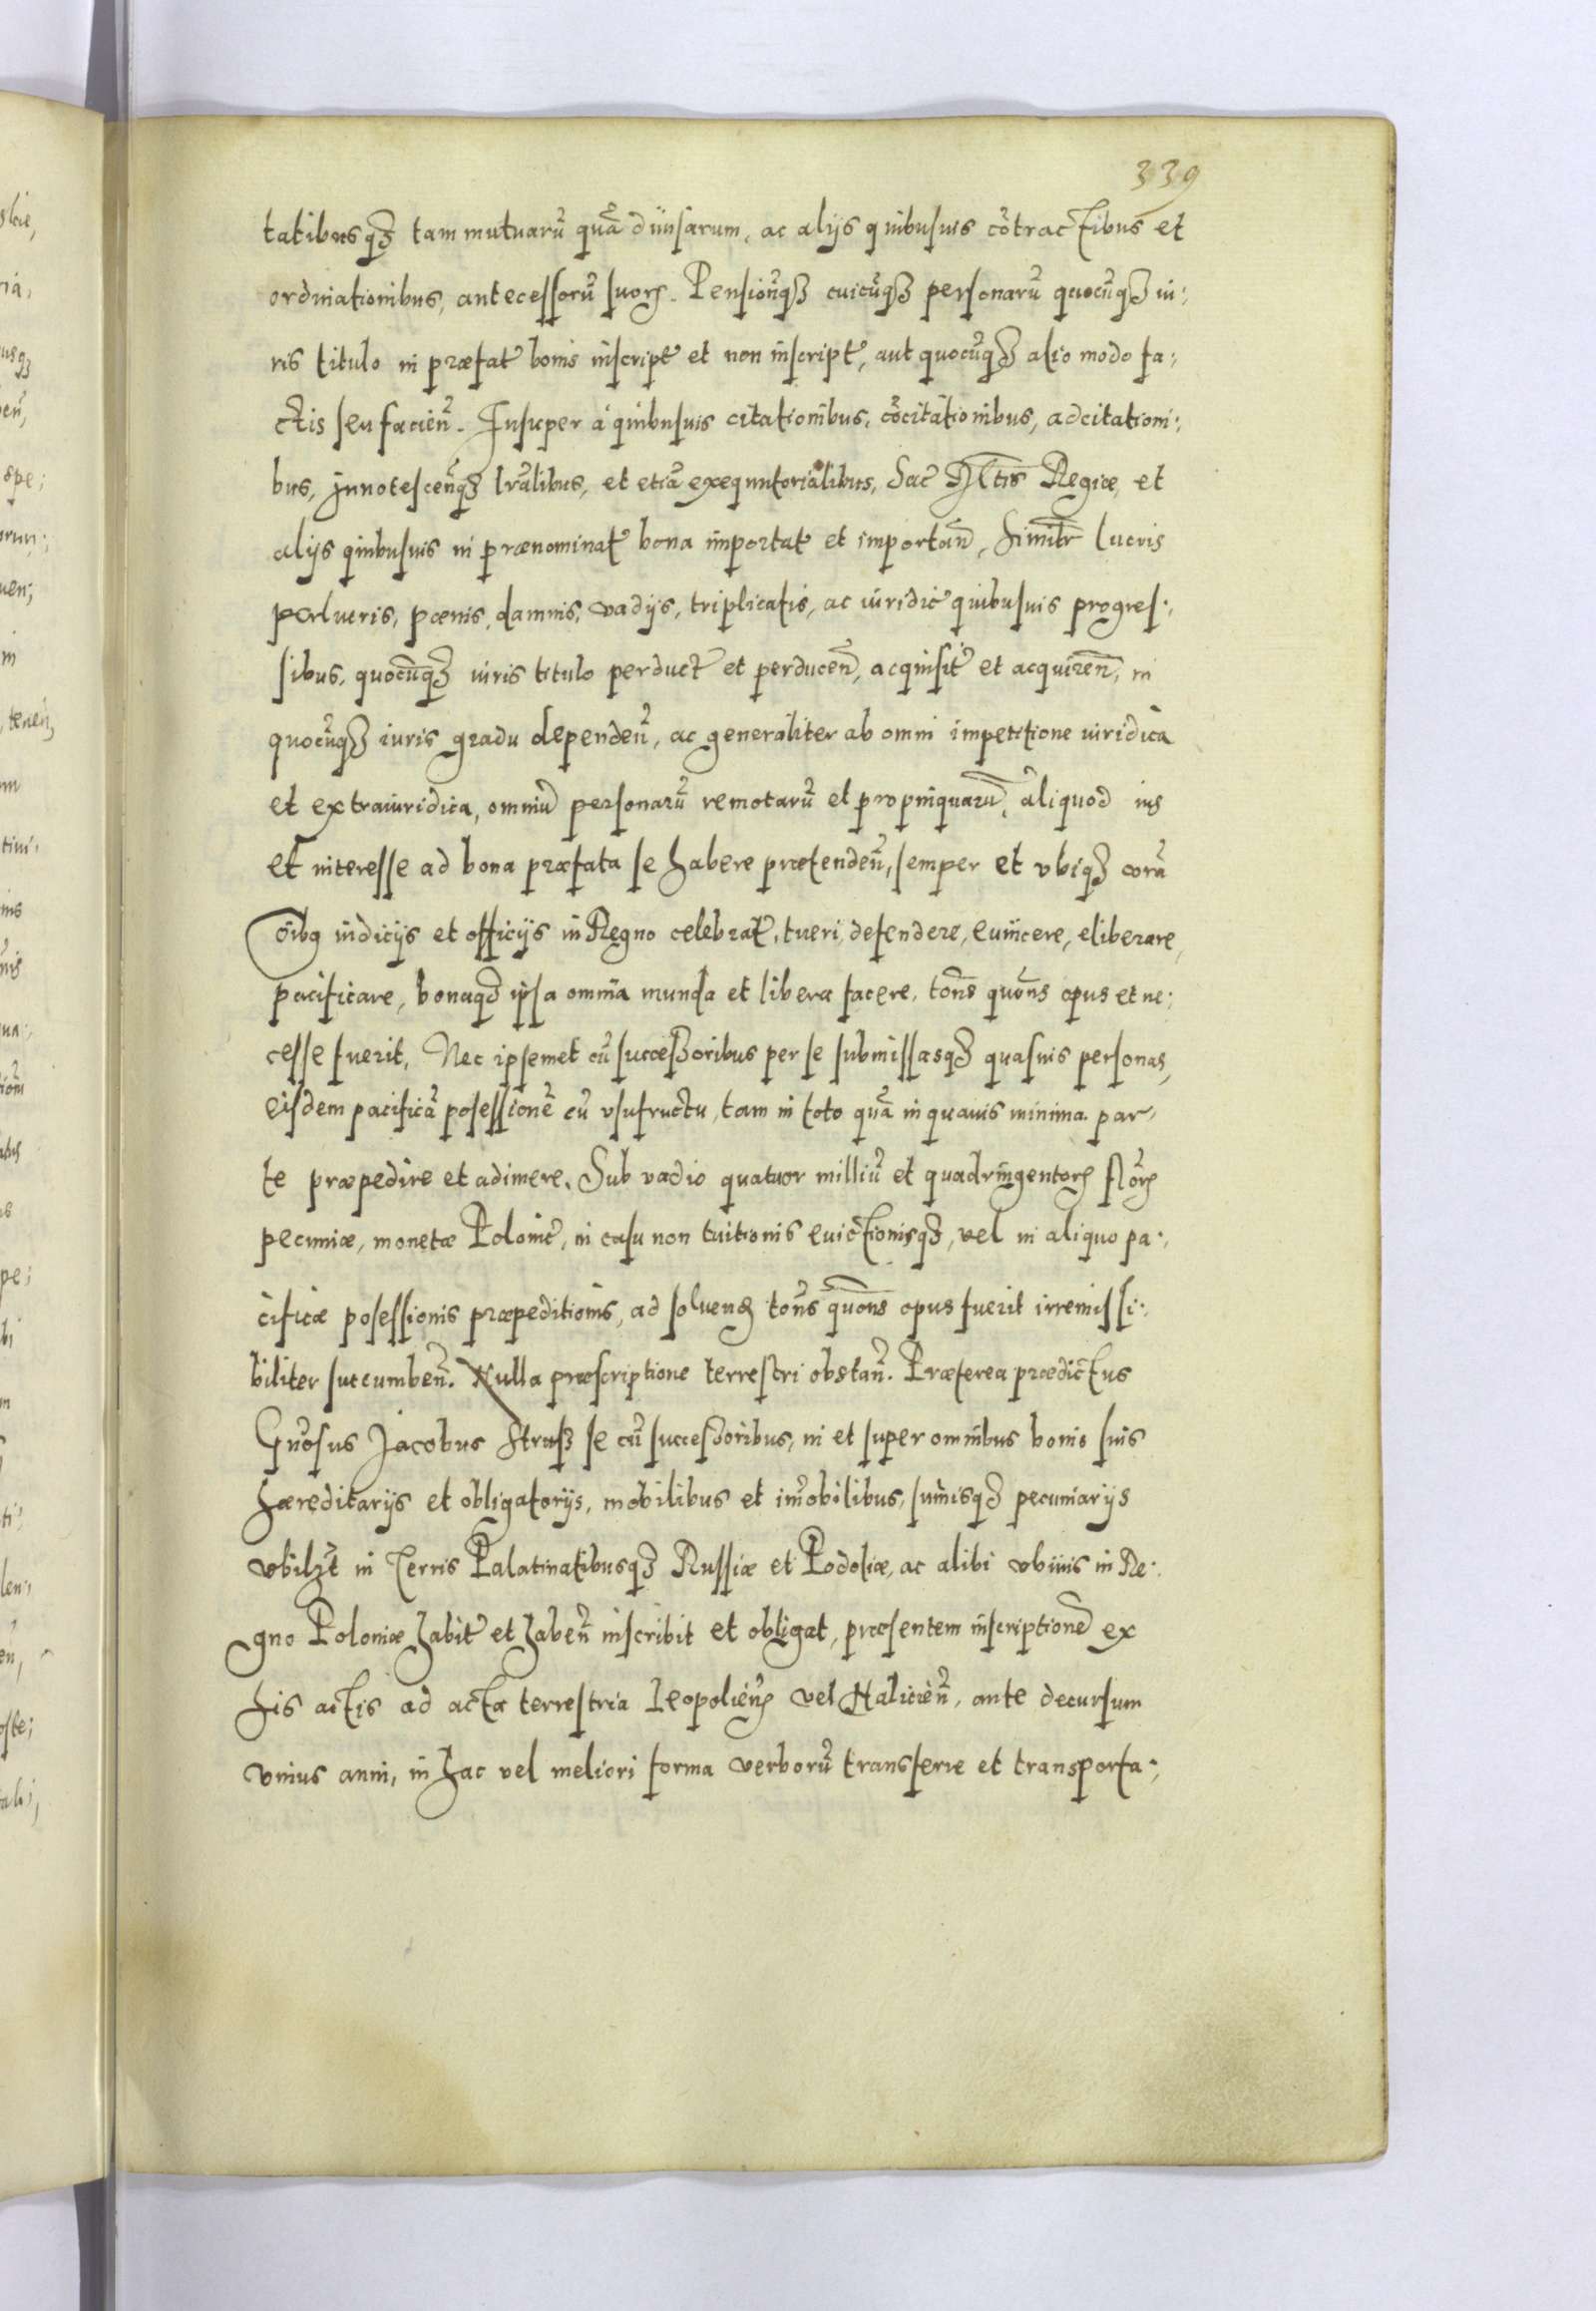 339
tatibusqꝫ tam mutuarũ quã diuisarum, ac alijs quibusuis cõtractibus et
ordinationibus, antecessorũ suorꝝ. Pensionũqꝫ cuicũqꝫ personarũ quocũqꝫ iu:
ris titulo in præfat̃ bonis inscript̃ et non inscript̃, aut quocũqꝫ alio modo fa:
ctis seu facien̄. Insuper á quibusuis citationibus, cõcitationibus, adcitationi:
bus, Innotescen̄qꝫ lr̃alibus, et etiã exequutorialibus, Sac̃ Mt̄is Regiæ, et
alijs quibusuis in prænominat̃ bona importat̃ et importan̄, Simitr̄ lucris
perlucris, pœnis, damnis, vadijs, triplicatis, ac iuridic̃ quibusuis progres:
sibus, quocũqꝫ iuris titulo perduct̃ et perducen̄, acquisit̃ et acquiren̄, in
quocũqꝫ iuris gradu dependen̄, ac generaliter ab omni impetitione iuridica
et extraiuridica, omniũ personarũ remotarũ et propinquarũ, aliquod ius
et interesse ad bona præfata se habere prætenden̄, semper et vbiqꝫ corã
õibꝰ iudicijs et officijs in Regno celebrat̃, tueri, defendere, euincere, eliberare,
pacificare, bonaqꝫ ipsa omnia munda et libera facere, ton̄s quon̄s opus et ne:
cesse fuerit, Nec ipsemet cũ successoribus per se submissasqꝫ quasuis personas,
eisdem pacificã posessionẽ cũ vsufructu, tam in toto quã in quauis minima par,
te præpedire et adimere. Sub vadio quatuor milliũ et quadringentorꝝ flõrꝝ
pecuniæ, monetæ Polonic̃, in casu non tuitionis euictionisqꝫ, vel in aliquo pa:
cificæ posessionis præpeditionis, ad soluend̃ ton̄s quon̄s opus fuerit irremissi:
biliter succumben̄. Nulla præscriptione terrestri obstan̄. Præterea prædictus
Gn̄osus Jacobus Strusz se cũ successoribus, in et super omnibus bonis suis
hæreditarijs et obligatorijs, mobilibus et im̃obilibus, sum̃isqꝫ pecuniarijs
vbilꝫt in Terris Palatinatibusqꝫ Russiæ et Podoliæ, ac alibi vbiuis in Re:
gno Poloniæ habit̃ et haben̄ inscribit et obligat, præsentem inscriptionẽ ex
his actis ad acta terrestria leopolien̄ vel Halicien̄, ante decursum
vnius anni, in hac vel meliori forma verborũ transferre et transporta: